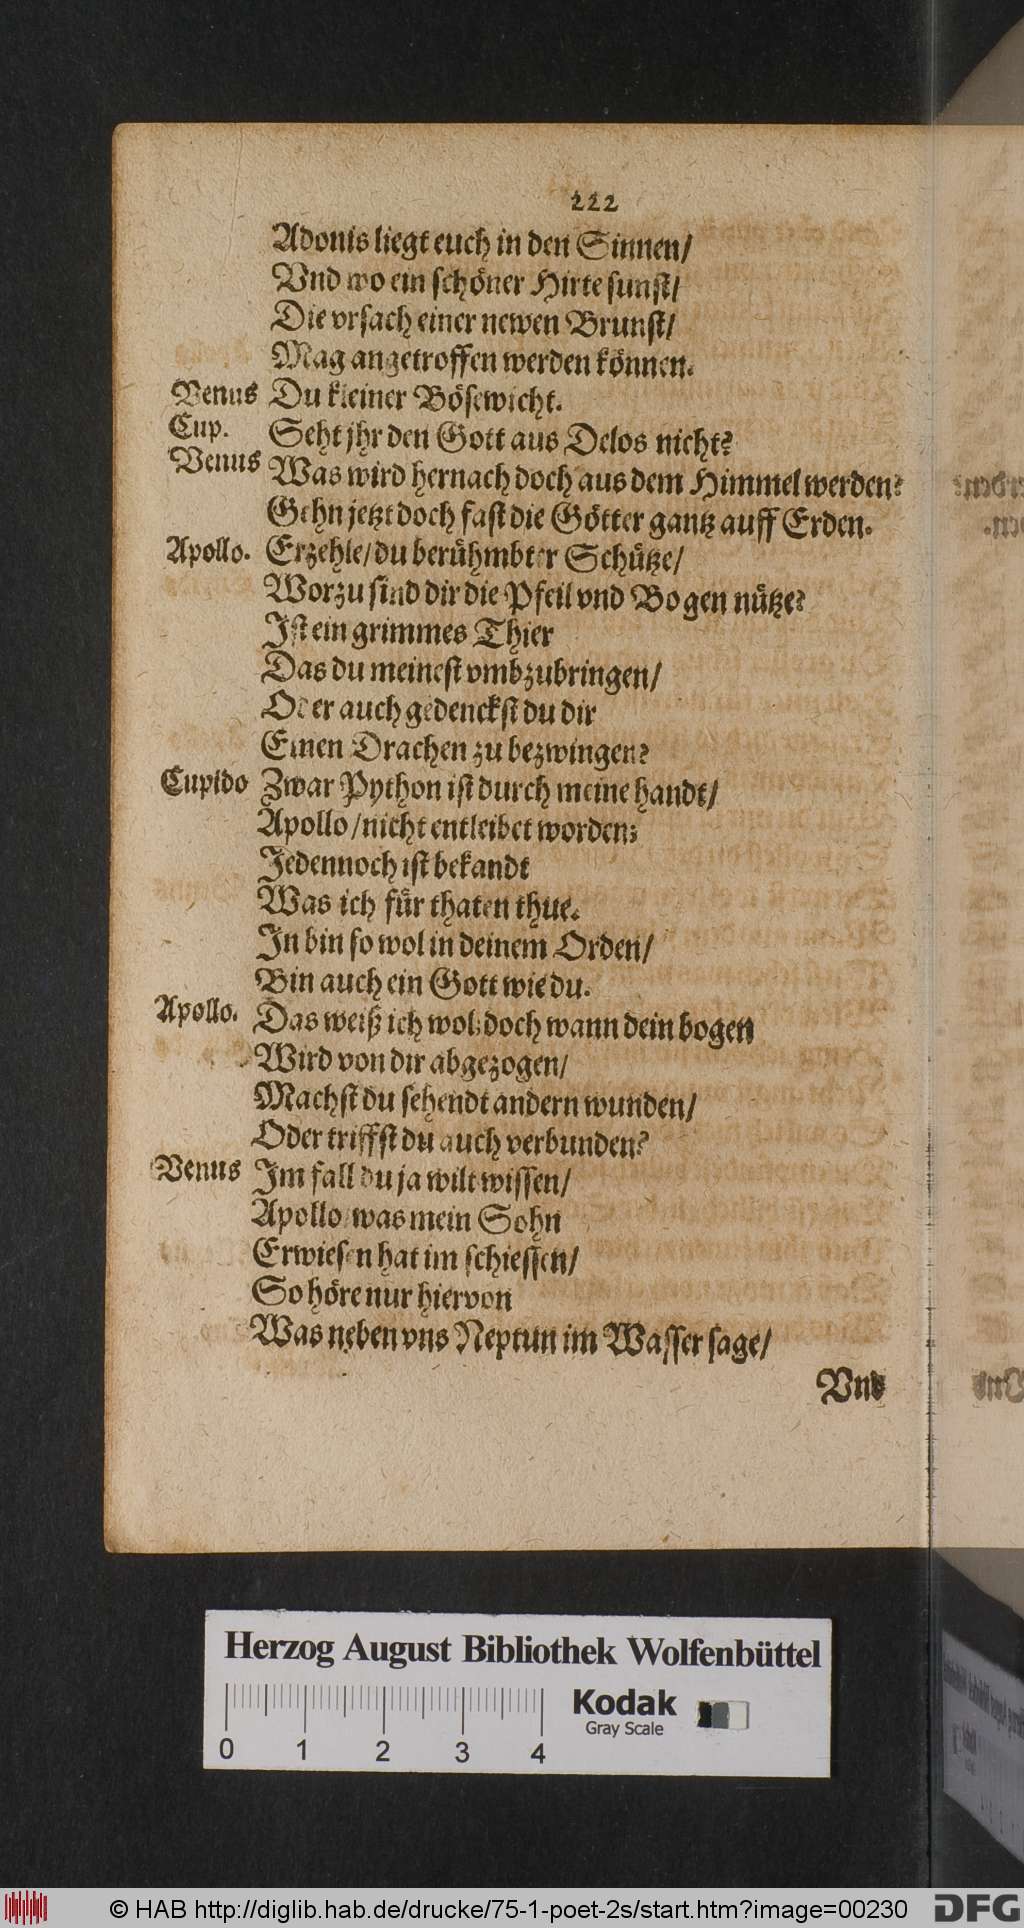 222
Adonis liegt euch in den Sinnen/
Vnd wo ein schöner Hirte sunst/
Die vrsach einer newen Brunst/
Mag angetroffen werden können.
Venus Du kleiner Bösewicht.
Cup. Seht jhr den Gott aus Delos nicht?
Venus Was wird hernach doch aus dem Himmel werden?
Gehn jetzt doch fast die Götter gantz auff Erden.
Apollo. Erzehle/ du berühmbter Schütze/
Worzu sind dir die Pfeil vnd Bogen nütze?
Ist ein grimmes Thier
Das du meinest vmbzubringen/
Oder auch gedenckst du dir
Einen Drachen zu bezwingen?
Cupido Zwar Python ist durch meine handt/
Apollo/ nicht entleibet worden;
Jedennoch ist bekandt
Was ich für thaten thue.
In bin so wol in deinem Orden/
Bin auch ein Gott wie du.
Apollo. Das weiß ich wol; doch wann dein bogen
Wird von dir abgezogen/
Machst du sehendt andern wunden/
Oder triffst du auch verbunden?
Venus Im fall du ja wilt wissen/
Apollo/ was mein Sohn
Erwiesen hat im schiessen/
So höre nur hiervon
Was neben vns Neptun im Wasser sage/
Vnd
Herzog August Bibliothek Wolfenbüttel
Kodak
Gray Scale
0 1 2 3 4
© HAB http://diglib.hab.de/drucke/75-1-poet-2s/start.htm?image=00230
DFG